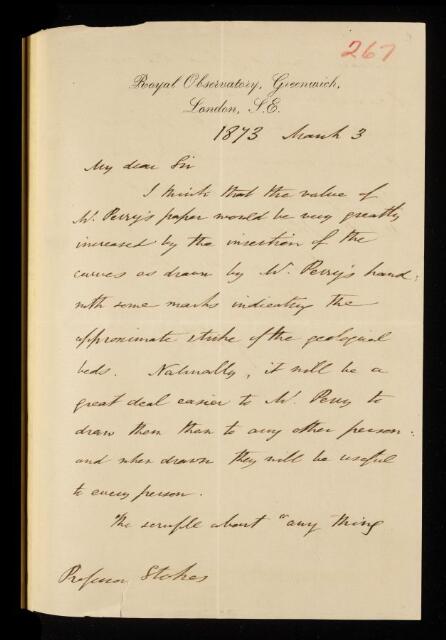 267
Royal Observatory, Greenwich,
London, S.E.
1873 March 3
My dear Sir
I think that the value of
Mr. Perry's paper would be very greatly
increased by the insertion of the
curves as drawn by Mr. Perry's hand:
with some marks indicating the
approximate strike of the geological
beds. Naturally, it will be a
great deal easier to Mr. Perry to
draw them than to any other person:
and when drawn they will be useful
to every person.
The scruple about "any thing
Professor Stokes